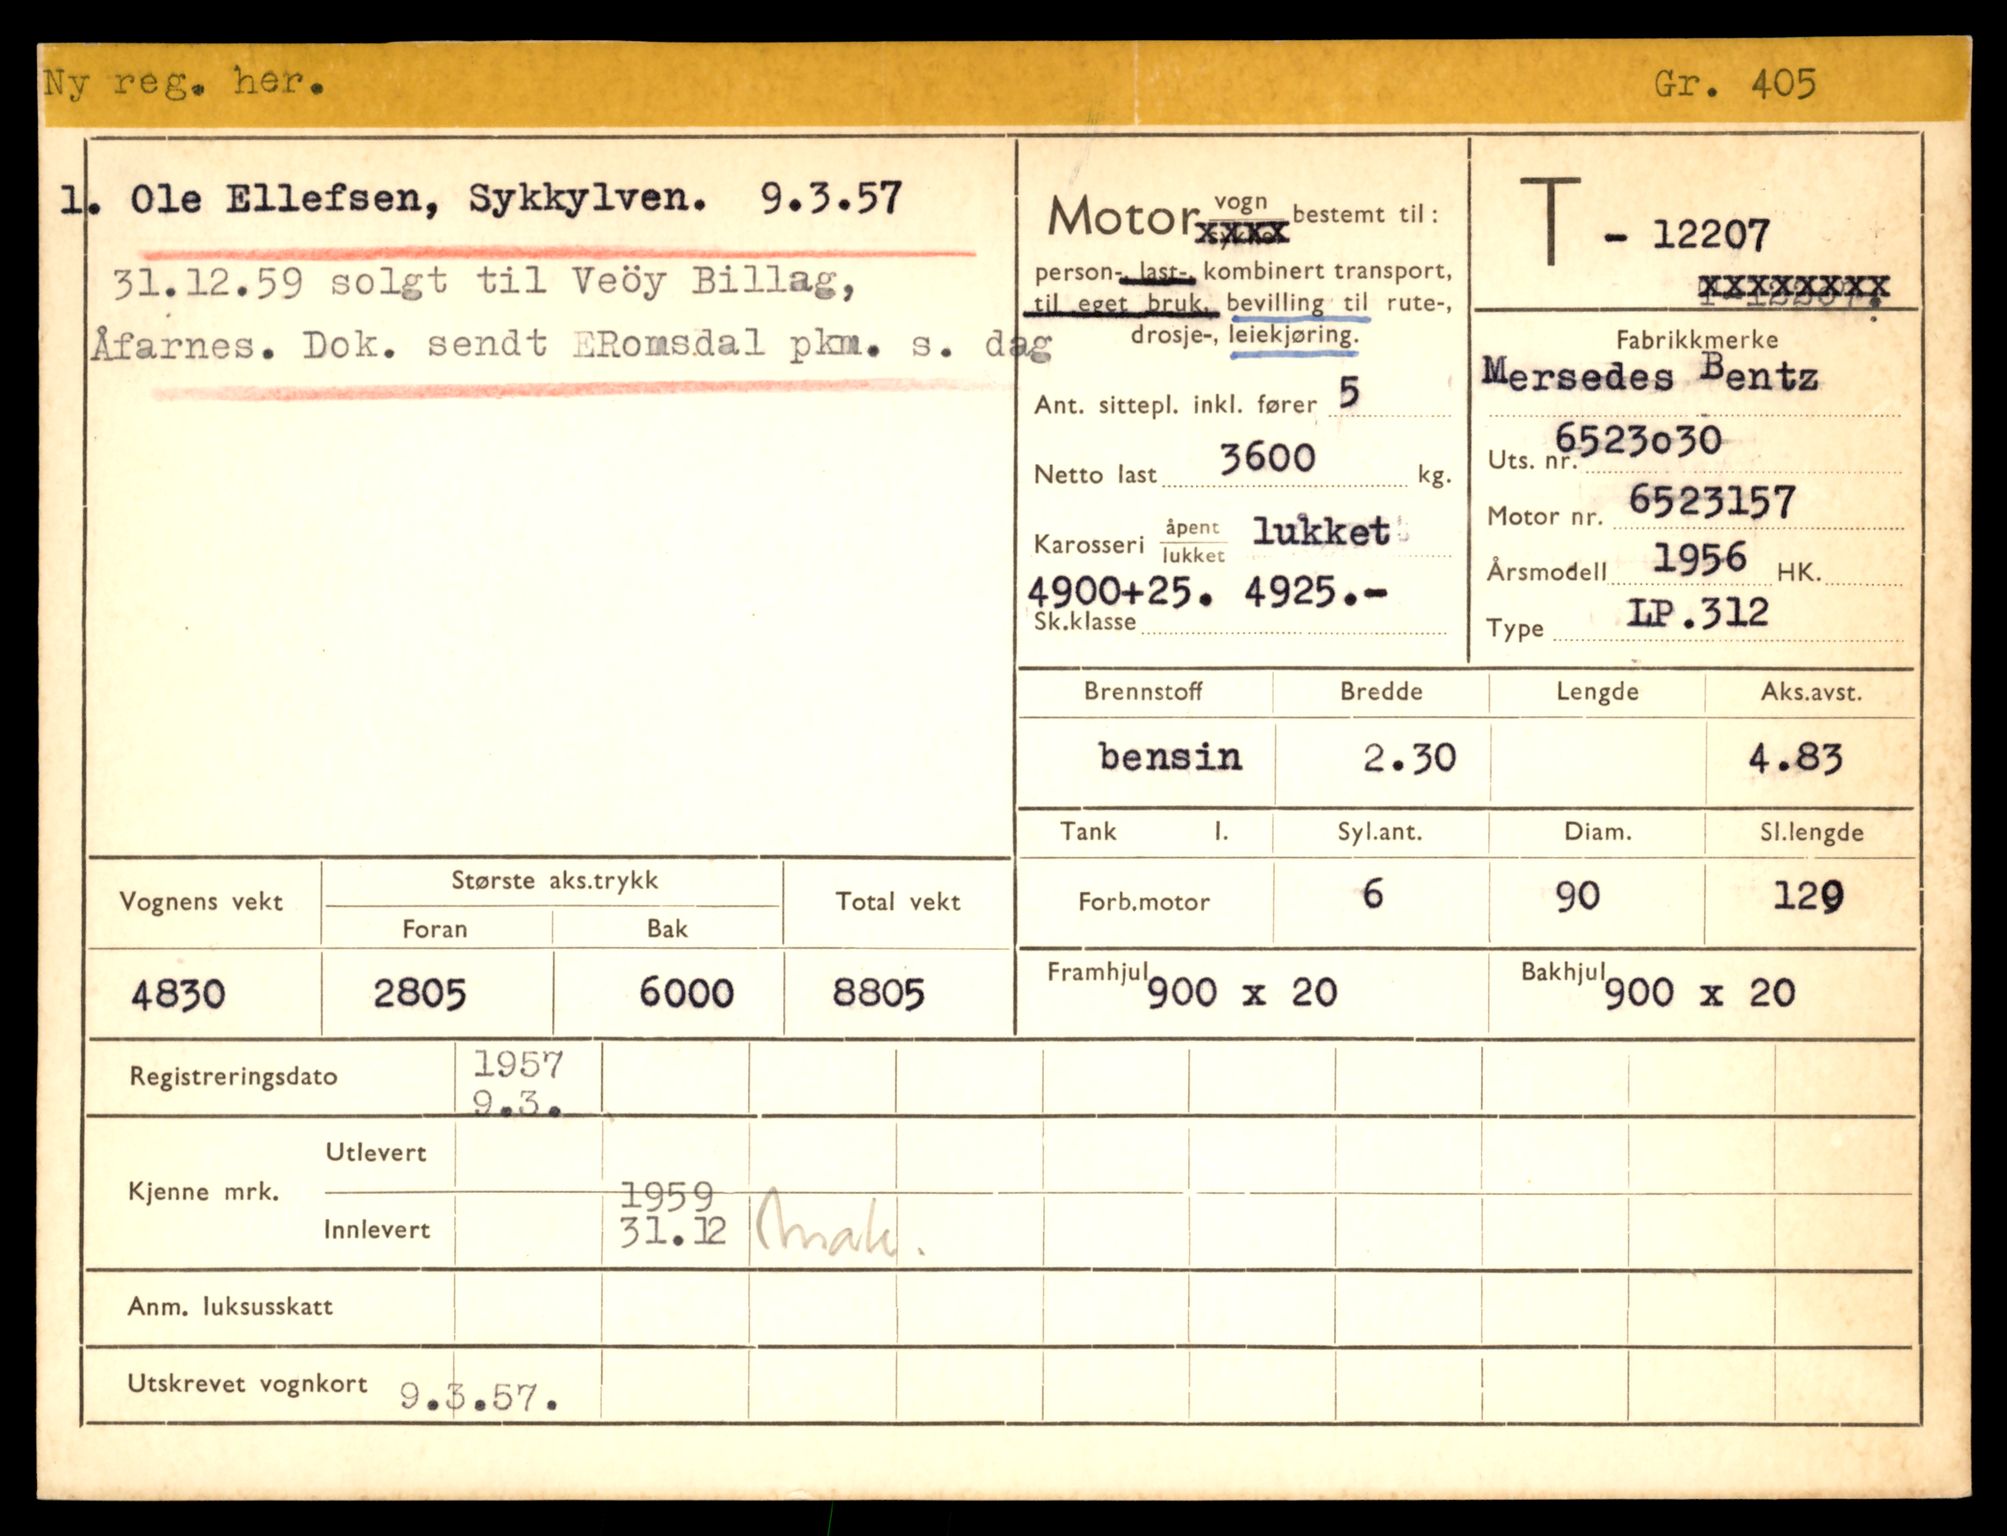 Ny reg. her. Gr. 405
1. Ole Ellefsen, Sykkylven. 9.3.57
31.12.59 solgt til Veöy Billag,
Åfarnes. Dok. sendt ERomsdal pkm. s. dag
Motor vogn xxxx bestemt til:
person-, last-, kombinert transport,
til eget bruk, bevilling til rute-,
drosje-, leiekjøring.
Ant. sittepl. inkl. fører 5
Netto last 3600 kg.
Karosseri åpent lukket lukket
4900+25. 4925.-
Sk.klasse
T - 12207
xxxxxxxx
Fabrikkmerke
Mersedes Bentz
Uts. nr. 6523o30
Motor nr. 6523157
Årsmodell 1956 HK.
Type LP.312
Brennstoff Bredde Lengde Aks.avst.
bensin 2.30 4.83
Tank l. Syl.ant. Diam. Sl.lengde
Forb.motor 6 90 129
Framhjul 900 x 20 Bakhjul 900 x 20
Vognens vekt Største aks.trykk Total vekt
Foran Bak
4830 2805 6000 8805
Registreringsdato 1957
9.3.
Kjenne mrk.
Utlevert
Innlevert 1959
31.12
Anm. luksusskatt
Utskrevet vognkort 9.3.57.